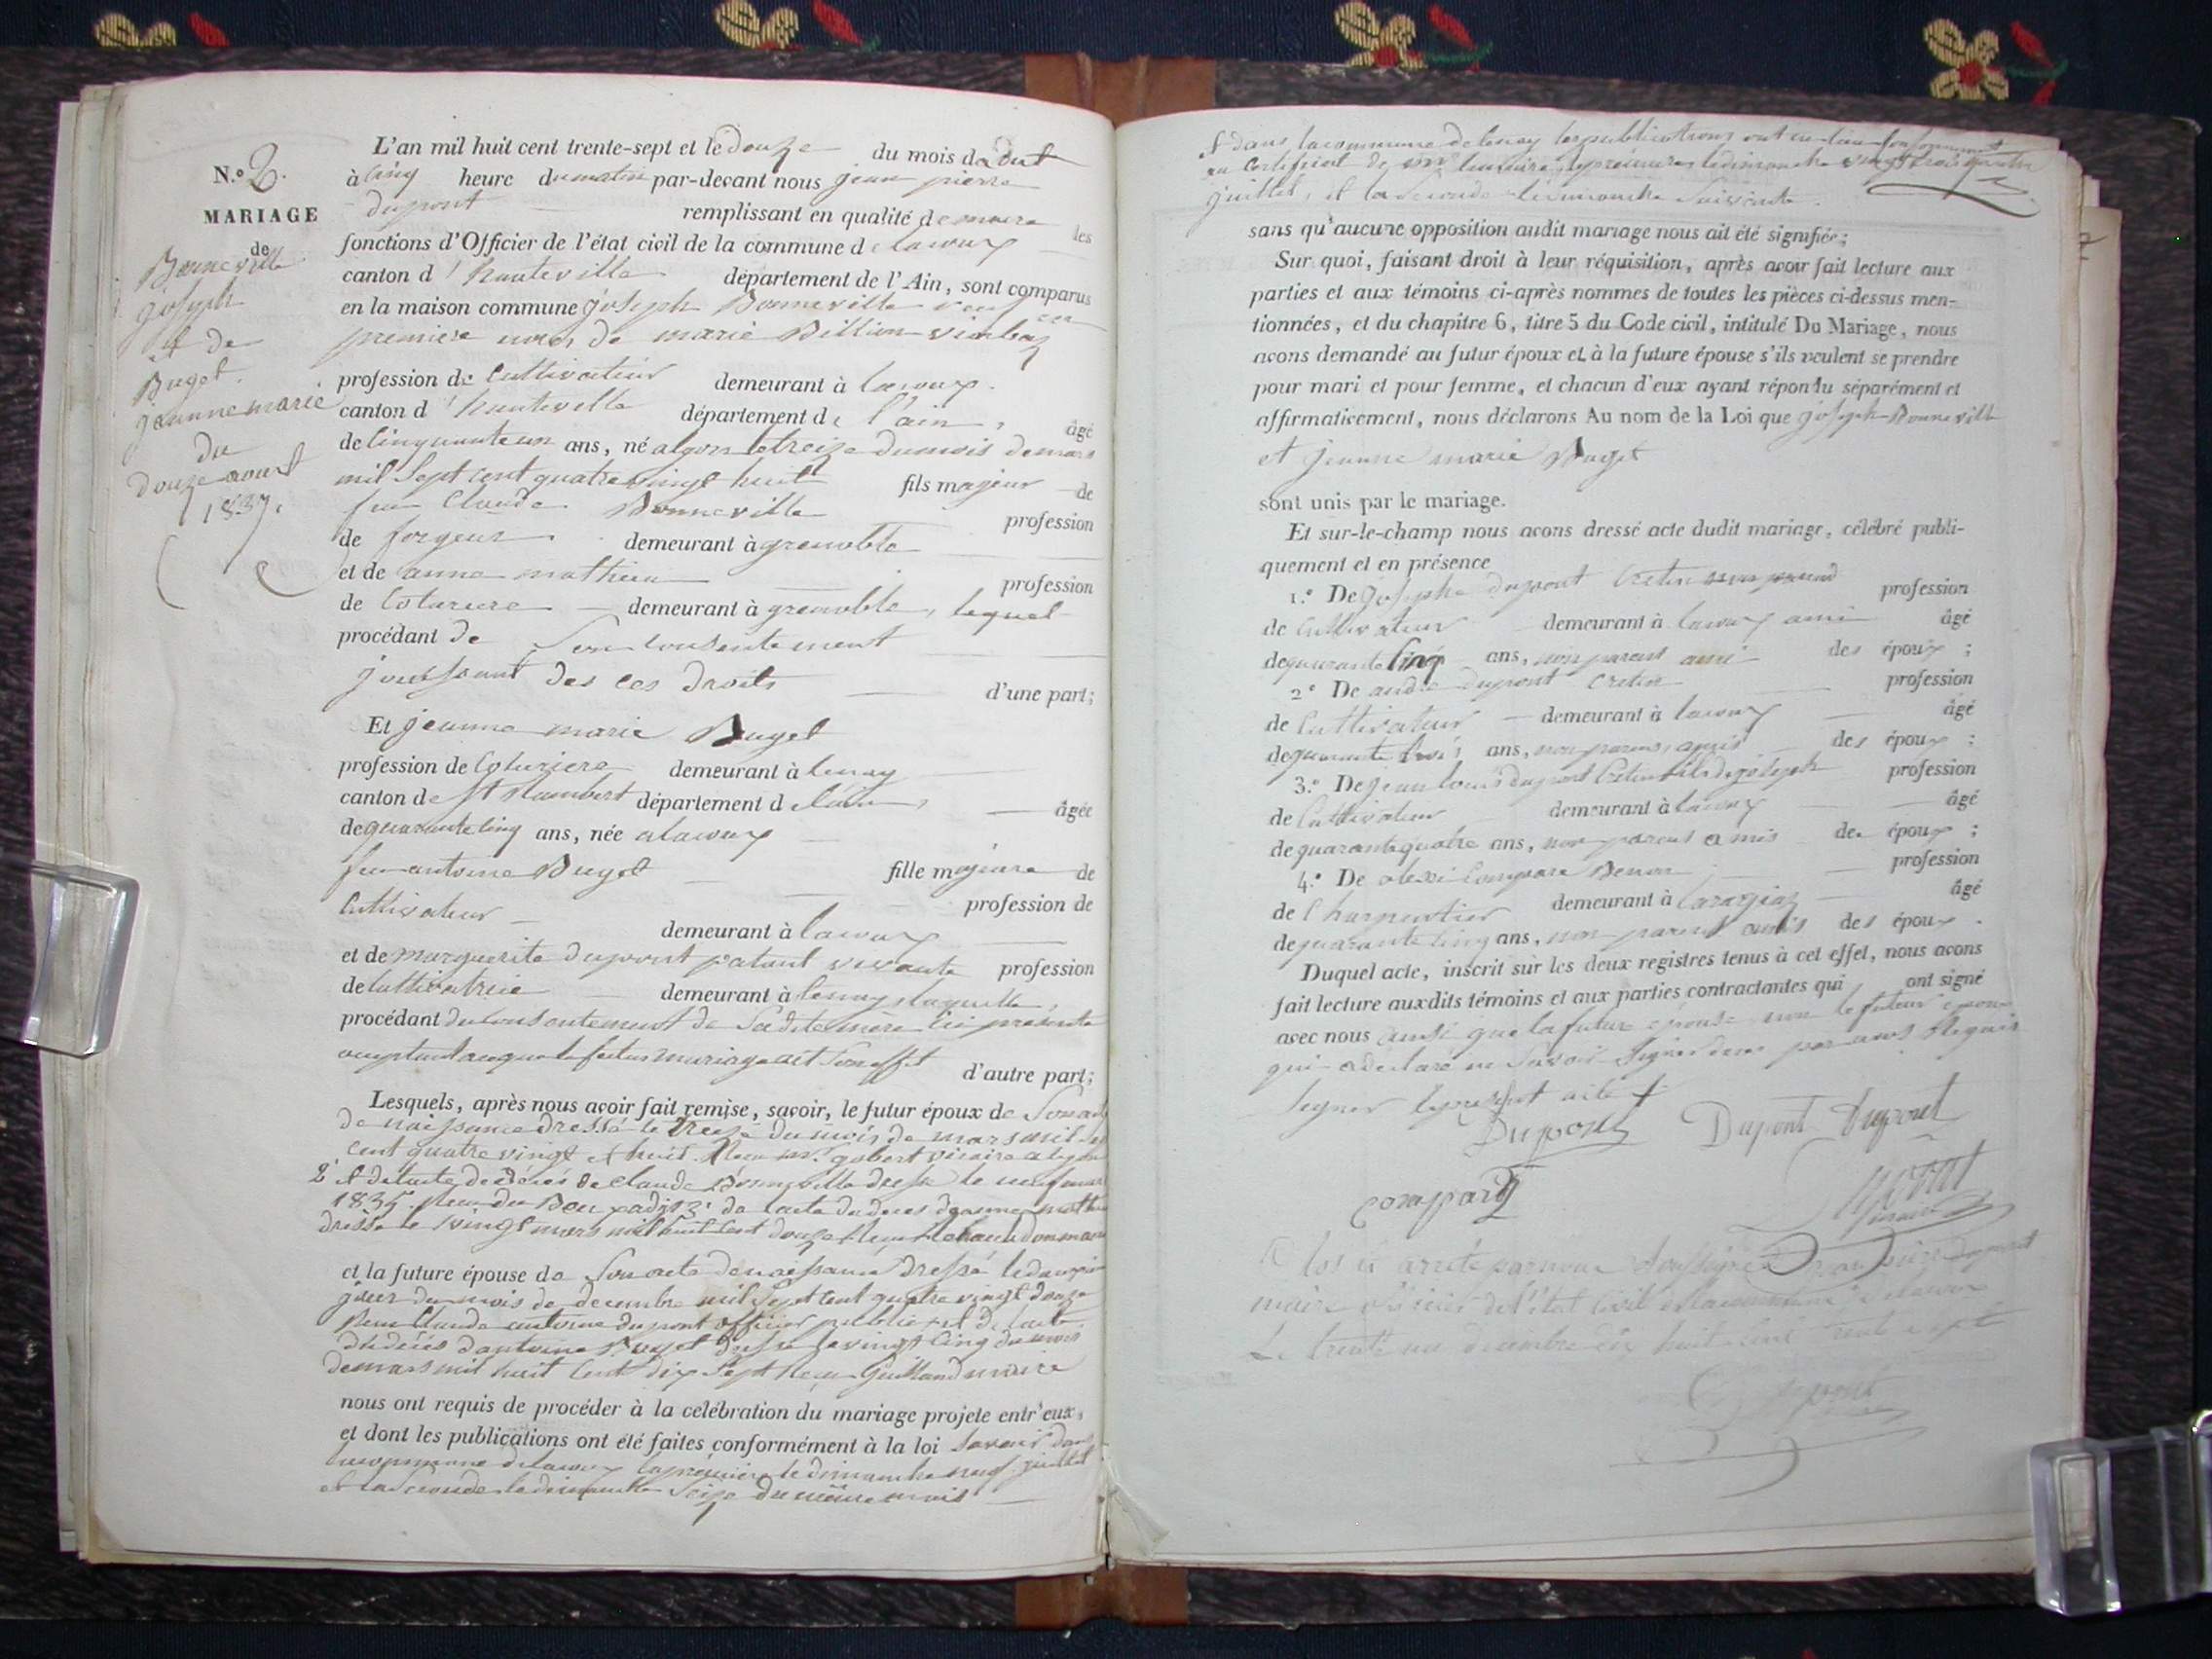 N.o 2.
MARIAGE
de
Bonneville
joseph
et de
Buget.
jeanne marie
du
douze aout
1837.
L'an mil huit cent trente-sept et le douze du mois d'aout
à cinq heure du matin par-devant nous jean pierre
dupont remplissant en qualité de maire les
fonctions d'Officier de l'état civil de la commune de lacoux
canton d'hauteville département de l'Ain, sont comparus
en la maison commune joseph Bonneville veuf en
premiere noces de marie Billion
profession de Cultivateur demeurant à lacoux.
canton d'hauteville département de l'ain, âgé
de cinquante un ans, né a lyon le treize du mois de mars
mil sept cent quatre vingt huit fils majeur de
feu Claude Bonneville profession
de forgeur demeurant à grenoble
et de anne mathieu profession
de Coturiere demeurant à grenoble, lequel
procédant de son consentement
jouissant des ces droits d'une part;
Et jeanne marie Buget
profession de Coturiere demeurant à tenay
canton de St Rambert département de l'ain, âgée
de quarante cinq ans, née a lacoux
feu antoine Buget fille majeure de
Cultivateur profession de
demeurant à lacoux
et de marguerite dupont patant vivante profession
de cultivatrice demeurant à tenay laquelle,
procédant du consentement de sadite mère ici présente
acceptant ace que le futur mariage ait son effet d'autre part;
Lesquels, après nous avoir fait remise, savoir, le futur époux de son acte
de naissance dressé le treize du mois de mars mil sept
cent quatre vingt et huit. Reçu mr. gobert vicaire a lyon
2° et de lacte de décés de Claude Bonneville dressé le neuf
1835. 3° de lacte de deces danne mathieu
dressé le vingt mars mil huit cent douze
et la future épouse de son acte de naissance dressé le
jour du mois de decembre mil sept cent quatre vingt douze
Reçu Claude antoine dupont officier public et de lacte
de décés dantoine Buget dressé le vingt cinq du mois
de mars mil huit cent dix sept Reçu maire
nous ont requis de procéder à la célébration du mariage projeté entr'eux,
et dont les publications ont été faites conformément à la loi savoir dans
la commune de lacoux la première le dimanche neuf juillet
et la seconde le dimanche seize du même mois
et dans la commune de tenay les publications ont eu lieu conformement
au certificat de mr le maire, la première le dimanche vingt trois
juillet, et la seconde le dimanche suivante.
sans qu'aucune opposition audit mariage nous ait été signifiée;
Sur quoi, faisant droit à leur réquisition, après avoir fait lecture aux
parties et aux témoins ci-après nommés de toutes les pièces ci-dessus men-
tionnées, et du chapitre 6, titre 5 du Code civil, intitulé Du Mariage, nous
avons demandé au futur époux et à la future épouse s'ils veulent se prendre
pour mari et pour femme, et chacun d'eux ayant répondu séparément et
affirmativement, nous déclarons Au nom de la Loi que joseph Bonneville
et jeanne marie Buget
sont unis par le mariage.
Et sur-le-champ nous avons dressé acte dudit mariage, célébré publi-
quement et en présence
1.° De josephe dupont Cretin profession
de Cultivateur demeurant à lacoux ami âgé
de quarante cinq ans, non parent ami des époux;
2° De andré dupont Cretin profession
de Cultivateur demeurant à lacoux âgé
de quarante trois ans, non parens, amis des époux;
3.° De jean louis dupont Cretin fils de joseph profession
de Cultivateur demeurant à lacoux âgé
de quarante quatre ans, non parent amis des époux;
4.° De alexi Benon profession
de Charpentier demeurant à âgé
de quarante cinq ans, non parent amis des époux.
Duquel acte, inscrit sur les deux registres tenus à cet effet, nous avons
fait lecture auxdits témoins et aux parties contractantes qui ont signé
avec nous ainsi que la future épouse non le futur époux
qui a déclaré ne savoir signer de par nous requis
signer le présent acte
Dupont Dupont Dupont
Dupont
maire
Clos et arrêté par nous soussigné jean pierre dupont
maire officier de l'état civil de la commune de lacoux
Le trente un decembre dix huit cent trente sept
Dupont